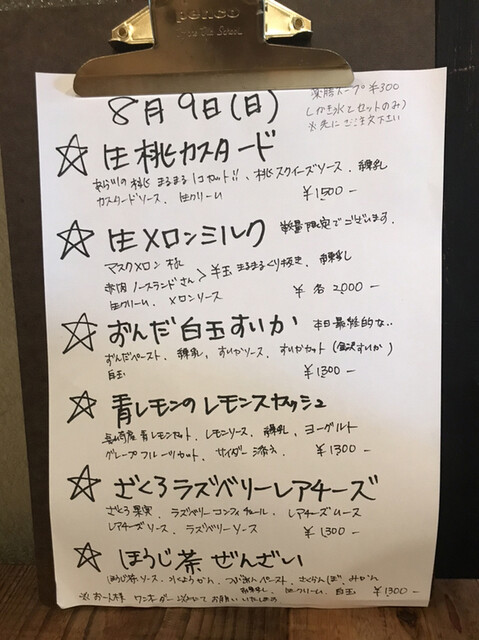 penco
薬膳スープ ¥300
(かき氷とセットのみ)
※先にご注文下さい
8月9日(日)
☆ 生桃カスタード
あら川の桃 まるまる1コカット!!、桃スクイーズソース、練乳
カスタードソース、生クリーム ¥1500-
☆ 生メロンミルク 数量限定でございます。
マスクメロン
赤肉 ノースランドさん > 半玉 まるまるくり抜き、練乳
生クリーム、メロンソース ¥ 各2000-
☆ ずんだ白玉すいか 本日最終的な..
ずんだペースト、練乳、すいかソース、すいかカット (金沢すいか)
白玉 ¥1300-
☆ 青レモンのレモンスカッシュ
青レモンカット、レモンソース、練乳、ヨーグルト
グレープフルーツカット、サイダー 添え ¥1300-
☆ ざくろラズベリーレアチーズ
ざくろ果実、ラズベリーコンフィチュール、レアチーズムース
レアチーズソース、ラズベリーソース ¥1300-
☆ ほうじ茶 ぜんざい
ほうじ茶ソース、水ようかん、つぶあんペースト、さくらんぼ、みかん
練乳、生クリーム、白玉 ¥1300-
※お一人様 ワンオーダー制にてお願いいたします